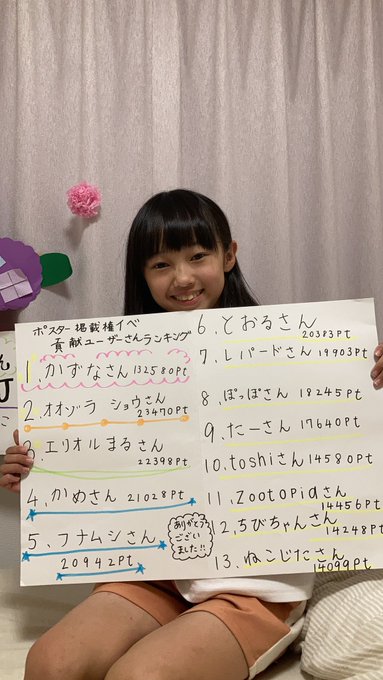 ポスター掲載権イベ
貢献ユーザーさんランキング
1、かずなさん 132580Pt
2、オオゾラ ショウさん
23470Pt
3、エリオルまるさん
22398Pt
4、かめさん 21028Pt
5、フナムシさん
20942Pt
ありがとう
ござい
ました!!
6、とおるさん
20383Pt
7、レパードさん 19903Pt
8、ぽっぽさん 18245Pt
9、たーさん 17640Pt
10、toshiさん 14580Pt
11、Zootopiaさん
14456Pt
12、ちびちゃんさん
14248Pt
13、ねこじたさん
14099Pt